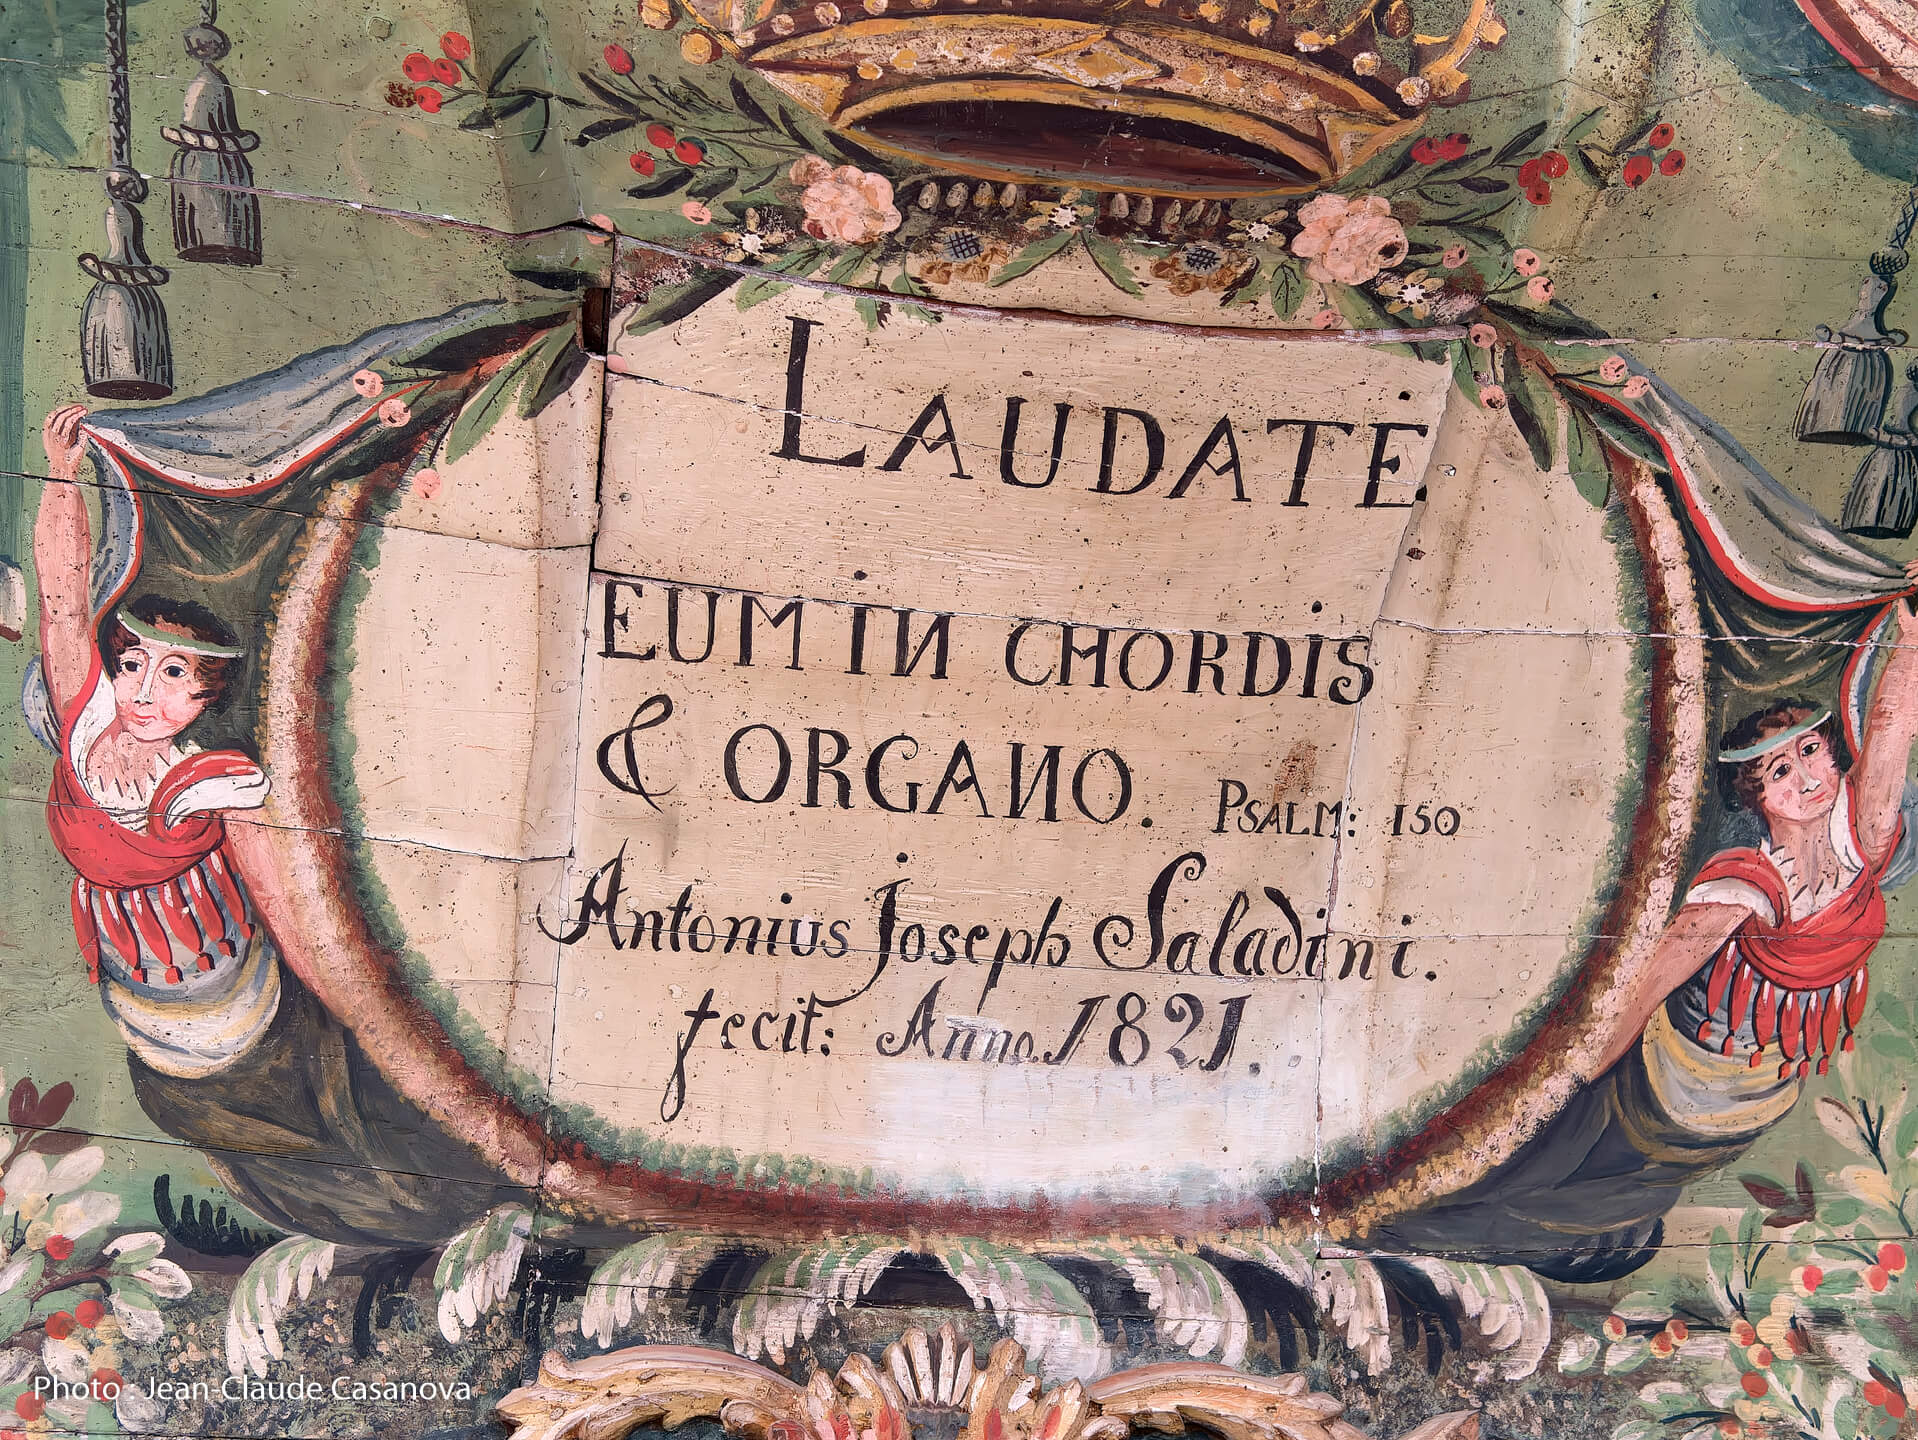 LAUDATE
EUM IN CHORDIS
& ORGANO. PSALM: 150
Antonius Joseph Saladini.
fecit: Anno. 1821.
Photo : Jean-Claude Casanova